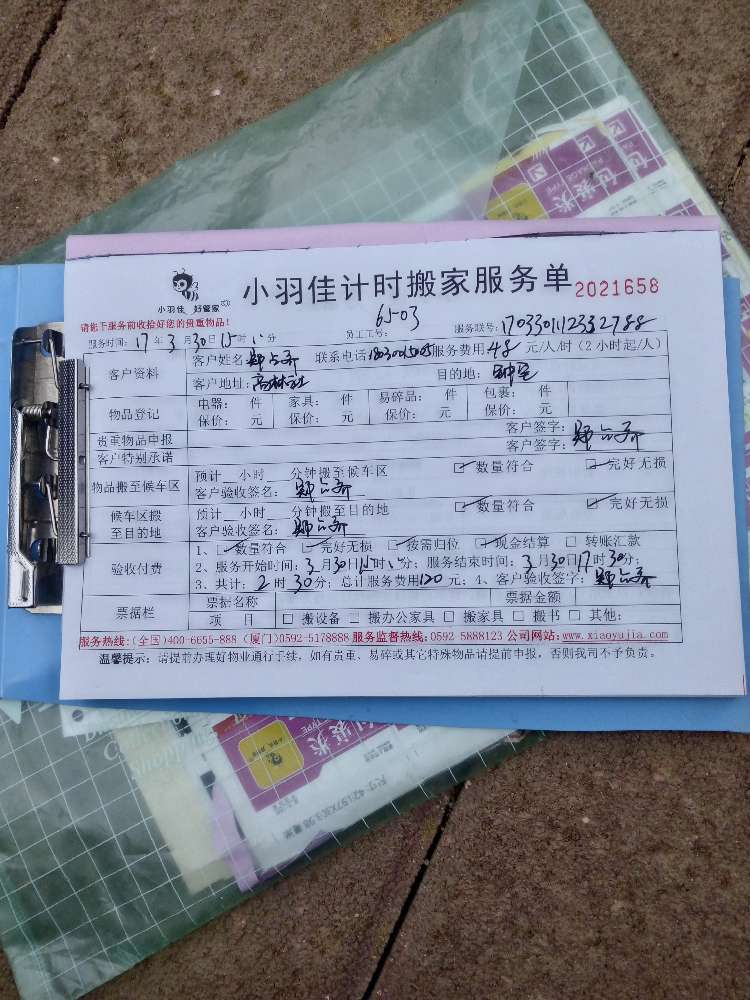 小羽佳 好管家
小羽佳计时搬家服务单 2021658
请您于服务前收拾好您的贵重物品!
服务时间: 17 年 3 月 30 日 15 时 分 员工工号: 6J-03 服务联号: 170330112332788
客户资料 客户姓名 联系电话 服务费用 48 元/人/时 (2小时起/人)
客户地址: 高林社 目的地:
物品登记 电器: 件 家具: 件 易碎品: 件 包裹: 件
保价: 元 保价: 元 保价: 元 保价: 元
贵重物品申报 客户签字:
客户特别承诺 客户签字:
物品搬至候车区 预计 小时 分钟搬至候车区 数量符合 完好无损
客户验收签名:
候车区搬至目的地 预计 小时 分钟搬至目的地 数量符合 完好无损
客户验收签名:
验收付费 1、 数量符合 完好无损 按需归位 现金结算 转账汇款
2、服务开始时间: 3 月 30 日 15 时 分; 服务结束时间: 3 月 30 日 17 时 30 分;
3、共计: 2 时 30 分; 总计服务费用 120 元; 4、客户验收签字:
票据栏 票据名称 票据金额
项 目 搬设备 搬办公家具 搬家具 搬书 其他:
服务热线: (全国)400-6655-888 (厦门)0592-5178888 服务监督热线: 0592 5888123 公司网站: www.xiaoyujia.com
温馨提示: 请提前办理好物业通行手续, 如有贵重、易碎或其它特殊物品请提前申报, 否则我司不予负责。